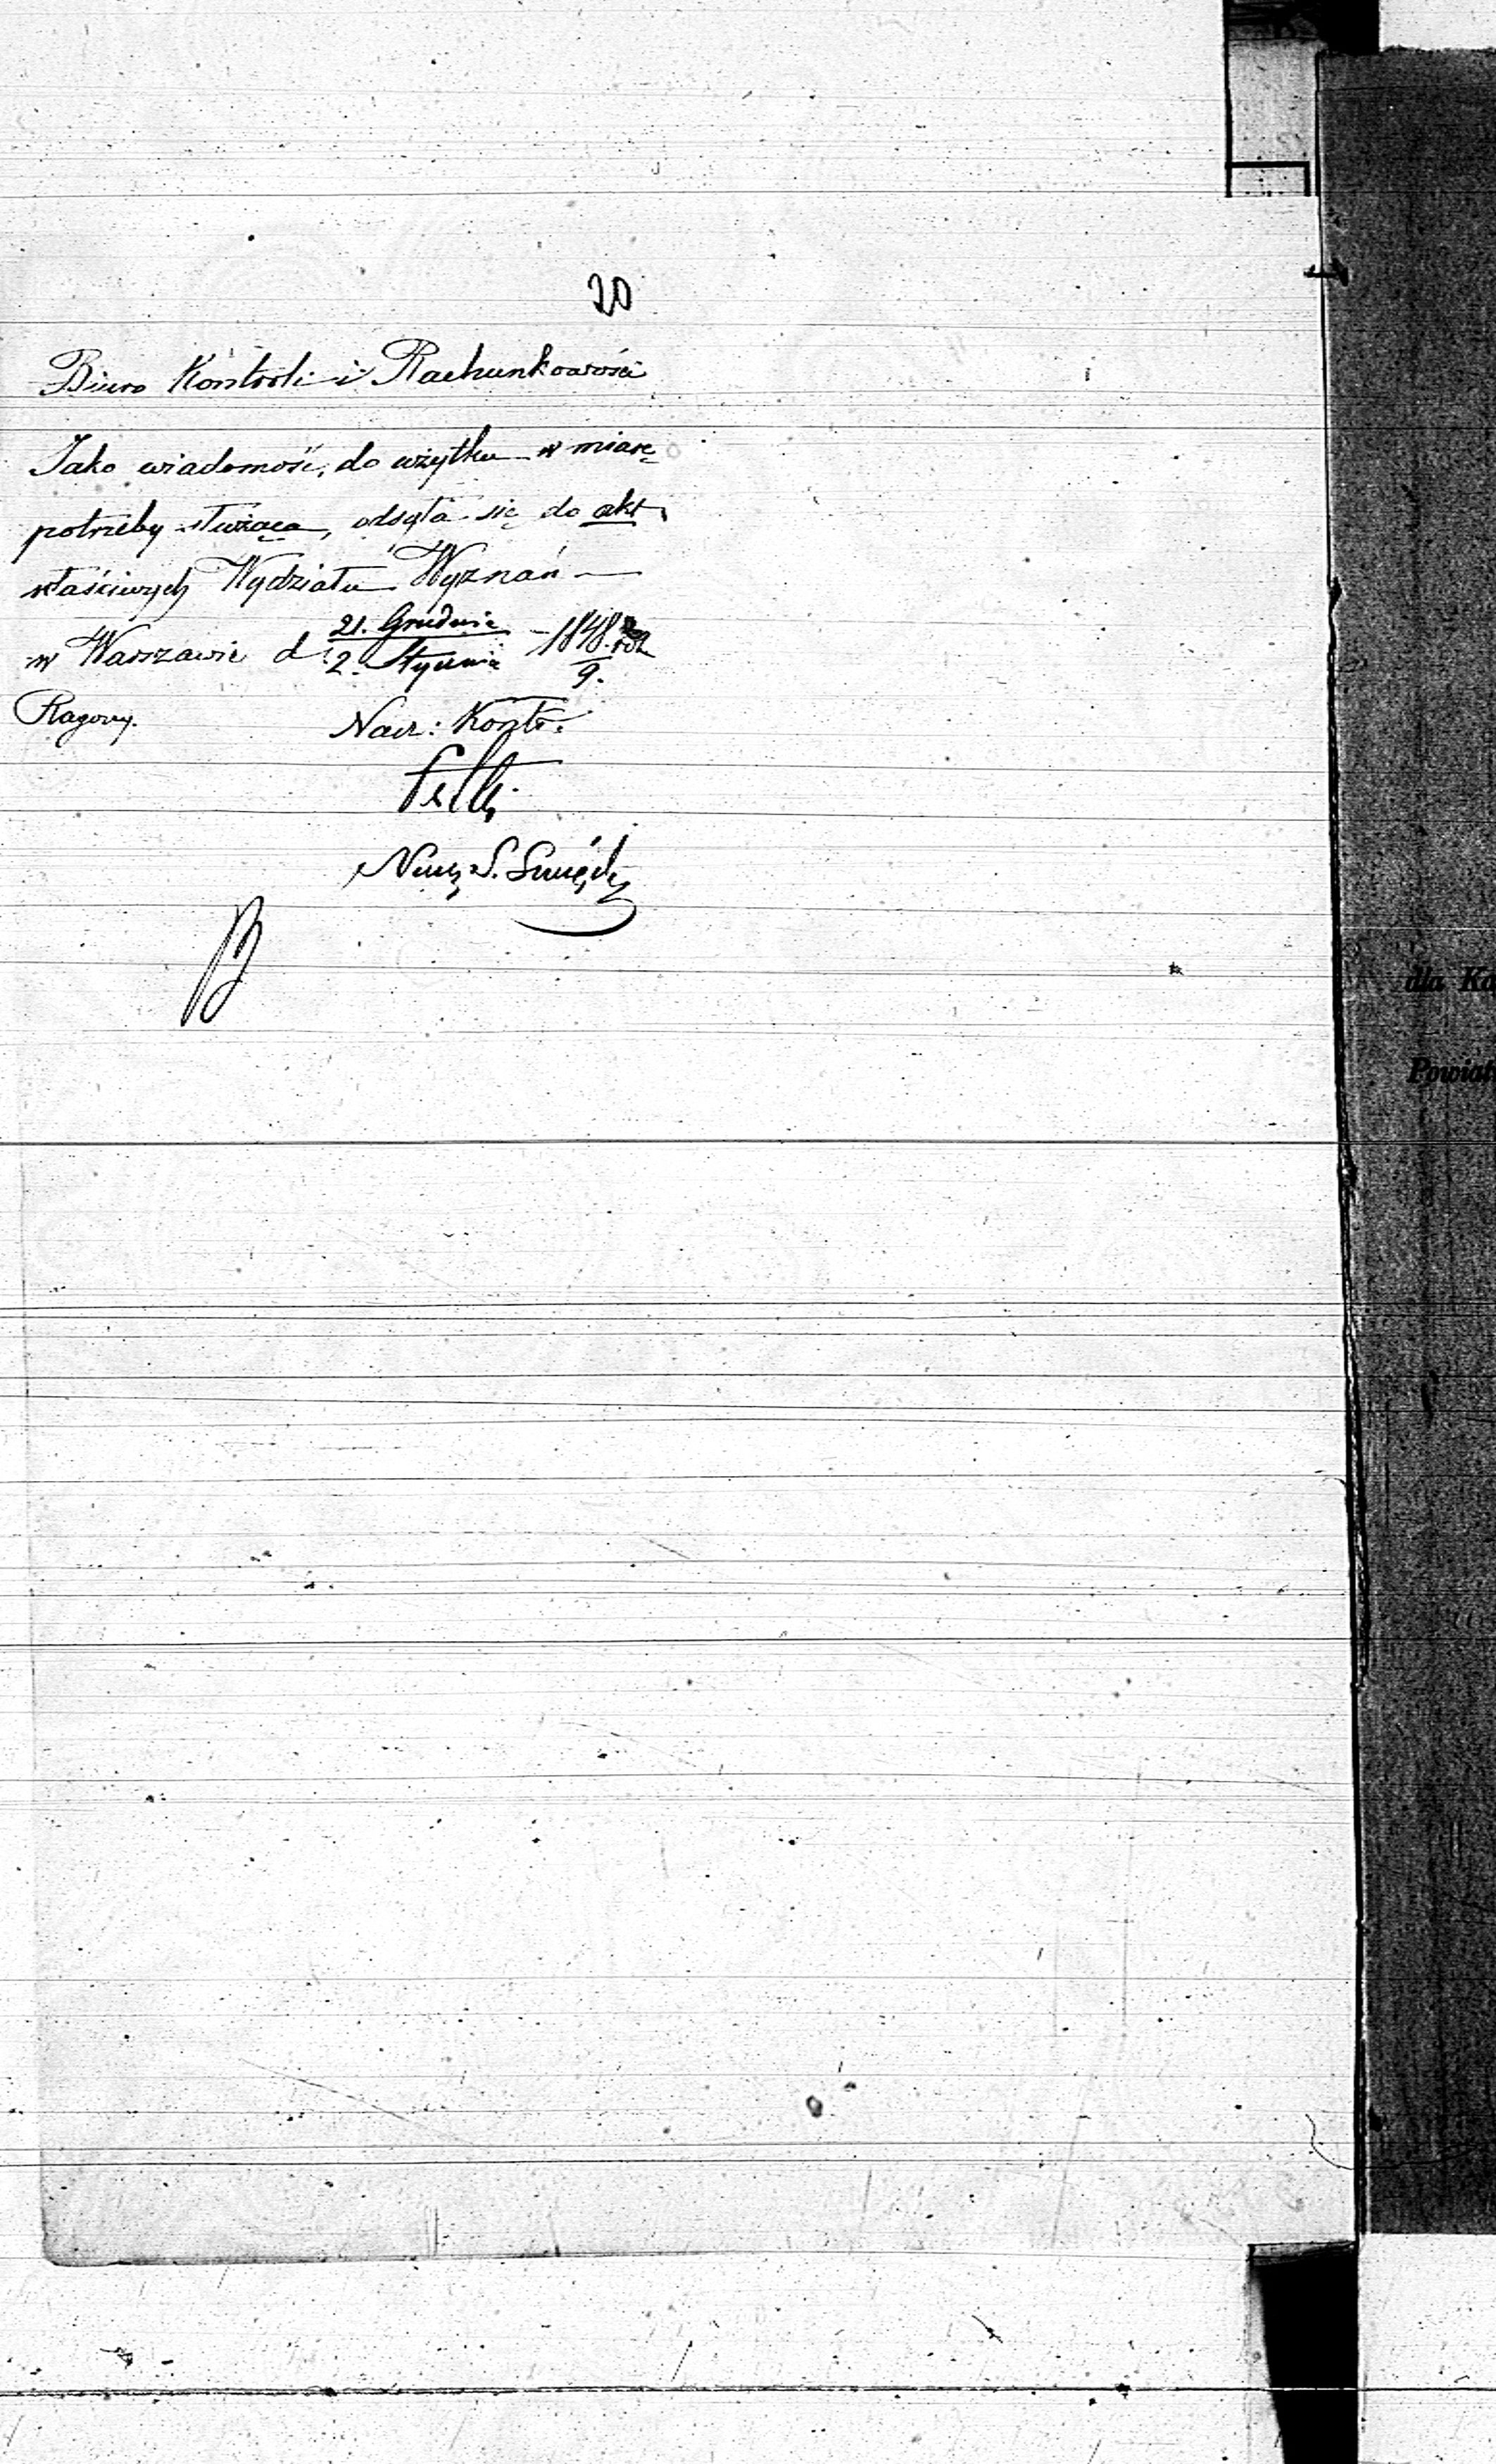 20
Biuro Kontroli i Rachunkowości
Jako wiadomość, do użytku w miarę
potrzeby służąca, odsyła się do akt
właściwych Wydziału Wyznań
w Warszawie d. 21. Grudnia 1848
2. Stycznia 9.
Nacz: Kontr.
dla Ka
Powiat